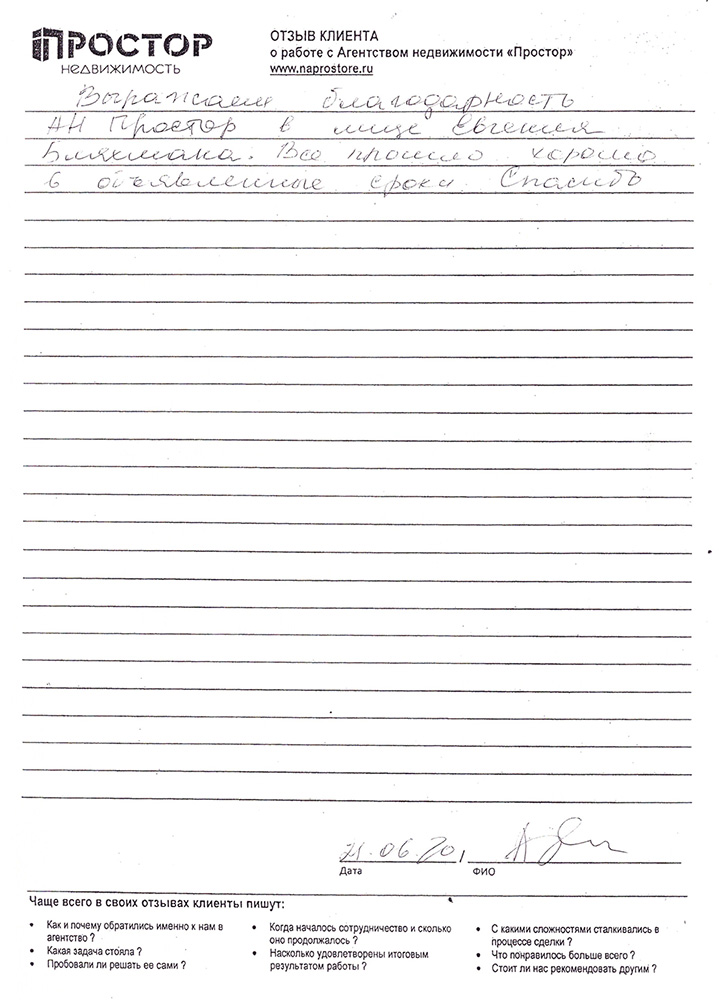 ПРОСТОР
НЕДВИЖИМОСТЬ
ОТЗЫВ КЛИЕНТА
о работе с Агентством недвижимости «Простор»
www.naprostore.ru
Выражаем благодарность
АН Простор в лице Евгения
Бляхмана. Все прошло хорошо
в объявленные сроки Спасибо
21.06.20
Дата
ФИО
Чаще всего в своих отзывах клиенты пишут:
• Как и почему обратились именно к нам в
агентство ?
• Какая задача стояла ?
• Пробовали ли решать ее сами ?
• Когда началось сотрудничество и сколько
оно продолжалось ?
• Насколько удовлетворены итоговым
результатом работы ?
• С какими сложностями сталкивались в
процессе сделки ?
• Что понравилось больше всего ?
• Стоит ли нас рекомендовать другим ?